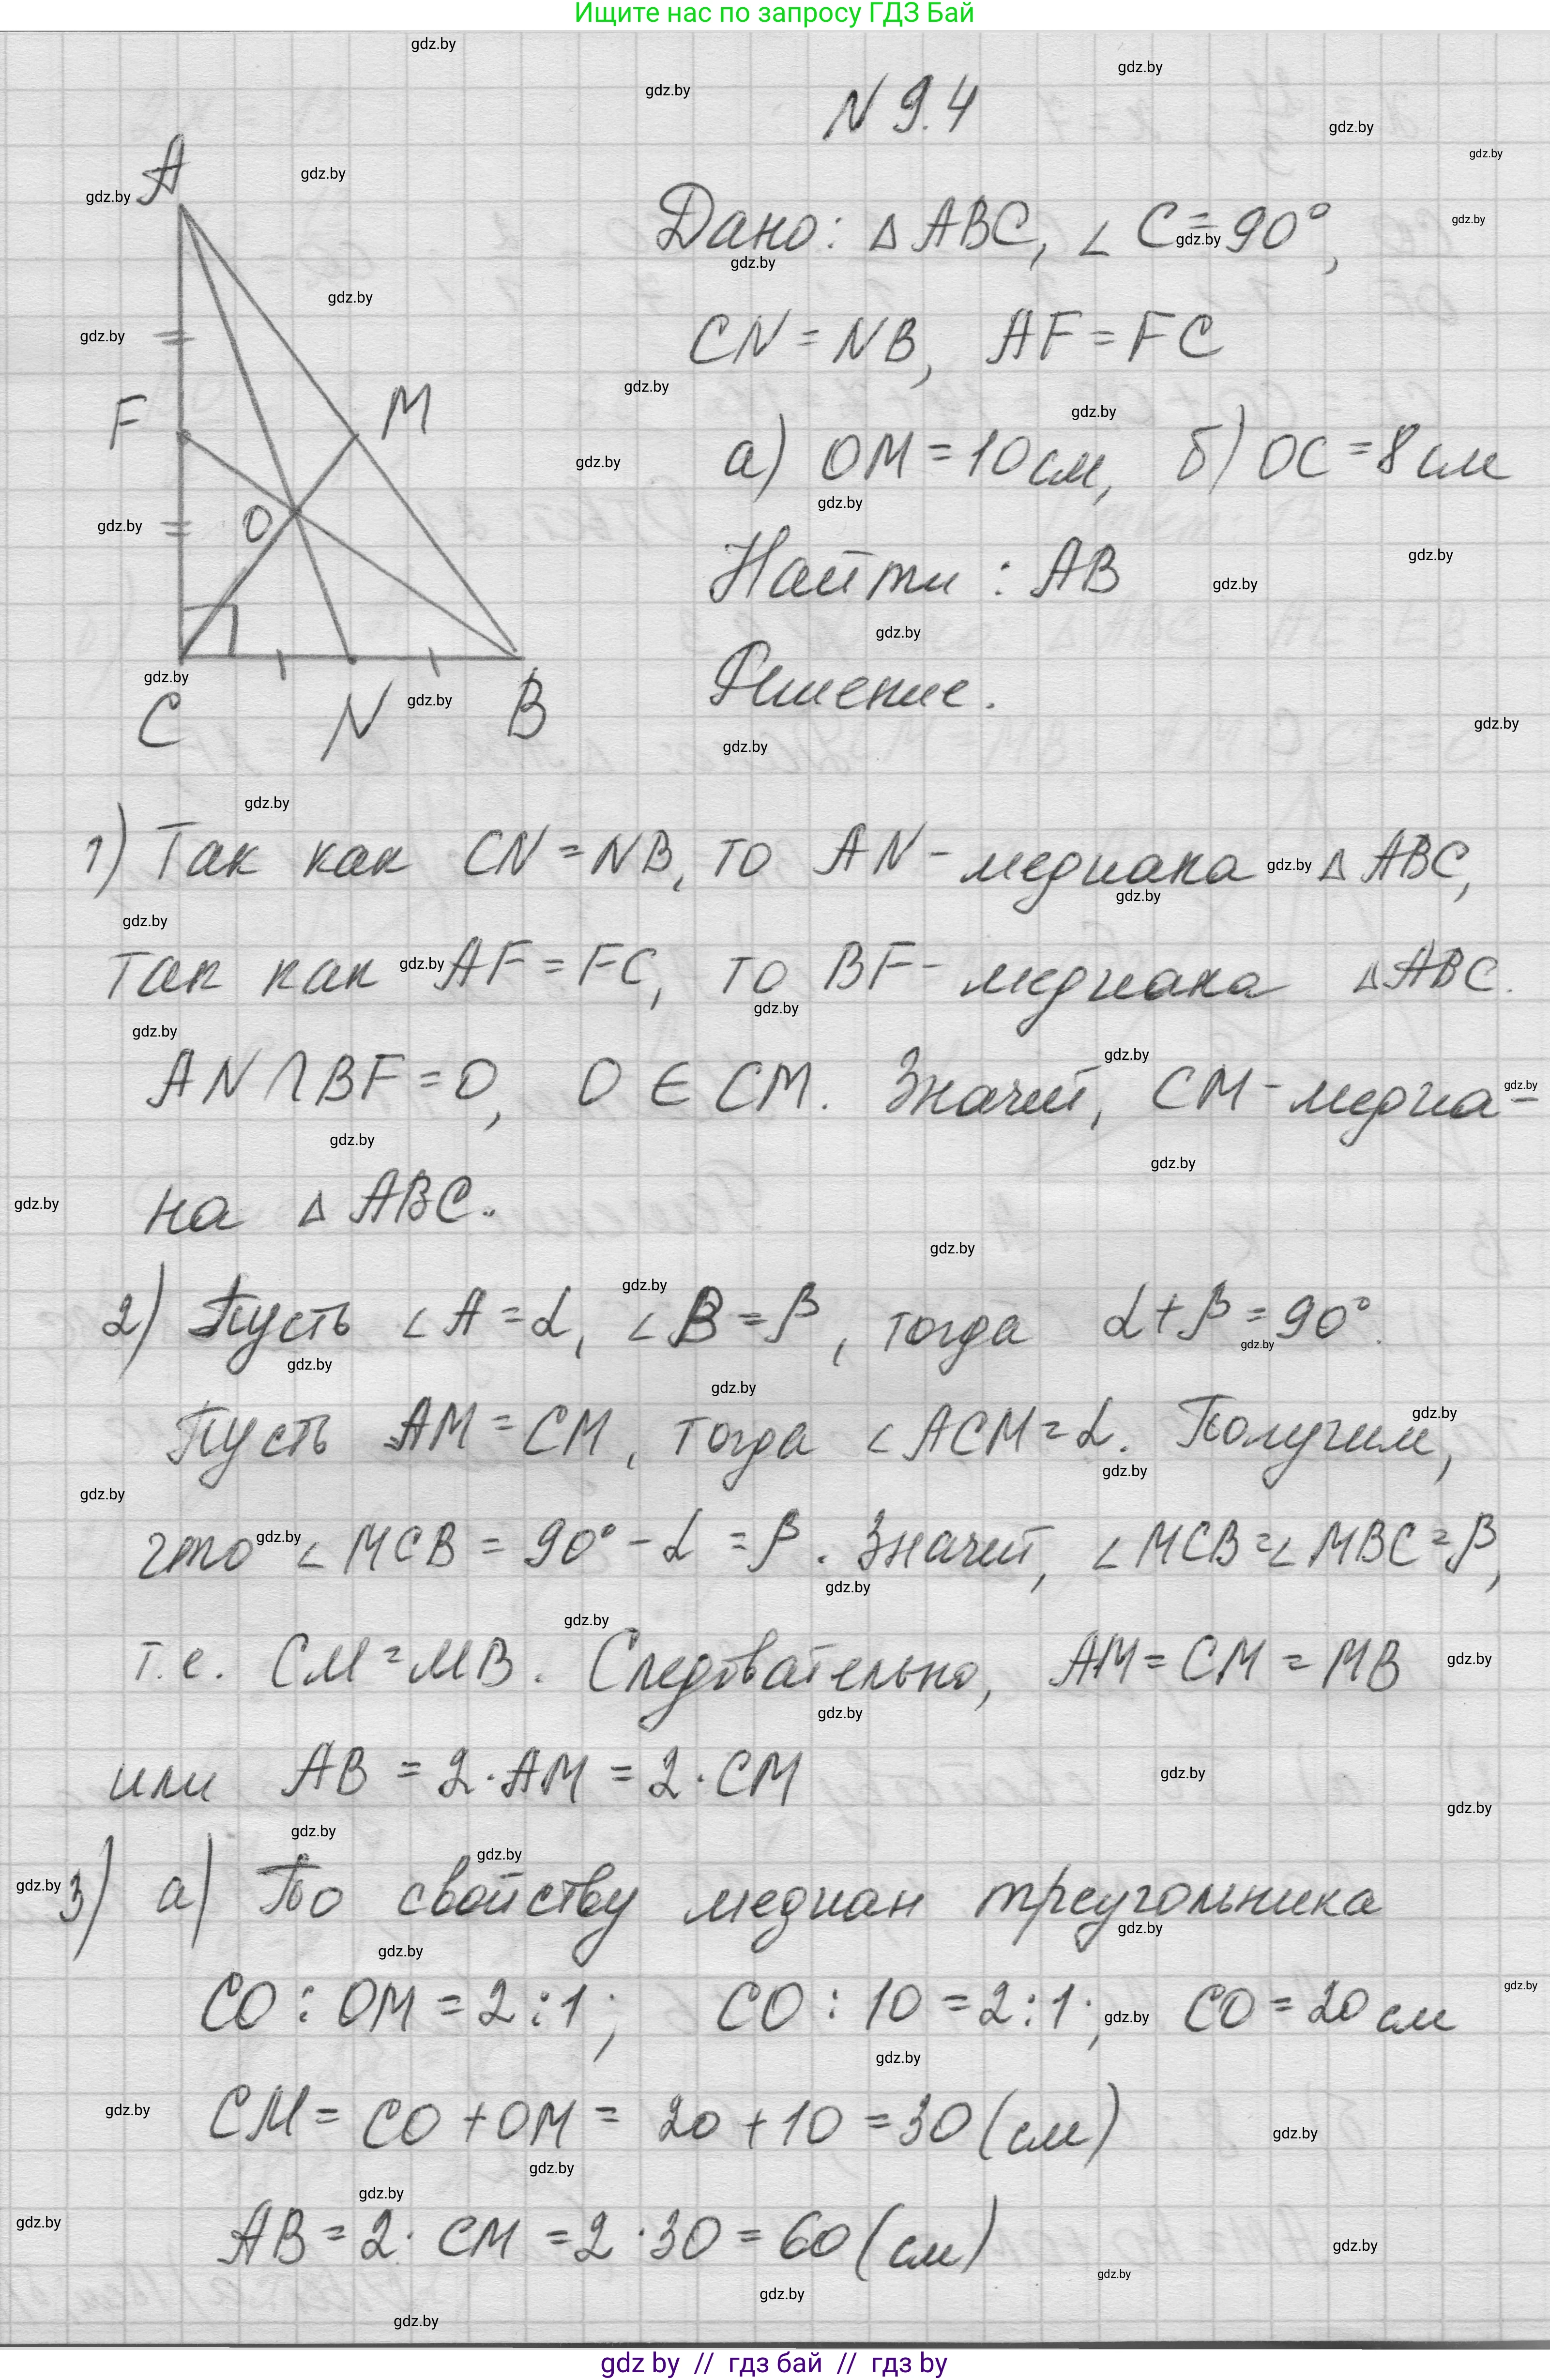 Ищите нас по запросу ГДЗ Бай
N 9.4
A
F
M
O
C
N
B
Дано: △ ABC, ∠ C = 90°,
CN = NB, AF = FC
а) OM = 10 см, б) OC = 8 см
Найти : AB
Решение.
1) Так как CN = NB, то AN - медиана △ ABC,
так как AF = FC, то BF - медиана △ ABC.
AN ∩ BF = O, O ∈ CM. Значит, CM - медиа-
на △ ABC.
2) Пусть ∠ A = α, ∠ B = β, тогда α + β = 90°.
Пусть AM = CM, тогда ∠ ACM = α. Получим,
что ∠ MCB = 90° - α = β. Значит, ∠ MCB = ∠ MBC = β,
т.е. CM = MB. Следовательно, AM = CM = MB
или AB = 2 · AM = 2 · CM
3) а) По свойству медиан треугольника
CO : OM = 2 : 1; CO : 10 = 2 : 1; CO = 20 см
CM = CO + OM = 20 + 10 = 30 (см)
AB = 2 · CM = 2 · 30 = 60 (см)
gdz by // гдз бай // гдз by